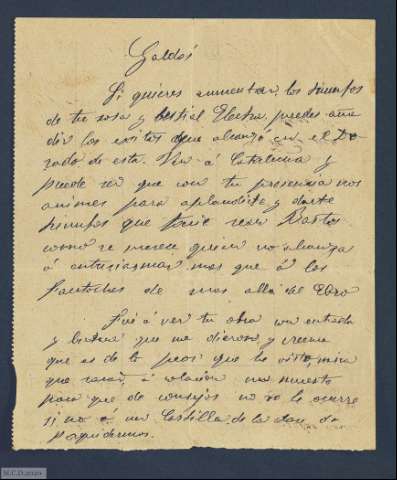 Galdós
Si quieres aumentar los triunfos
de tu sosa y bestial Electra, puedes aña
dir los exitos que alcanzó en el
de esta. Ven á Cataluña y
puede ser que con tu presencia nos
animes para aplaudirte y darte
triunfos que
como se merece quien no alcanza
á entusiasmar mas que á los
fantoches de mas allá del Ebro
Fuí á ver tu obra con entrada
y butaca que me dieron y creeme
que es de lo peor que he visto, mira
que sacar á colación un muerto
para que de consejos no se le ocurre
si no á un Castilla de la